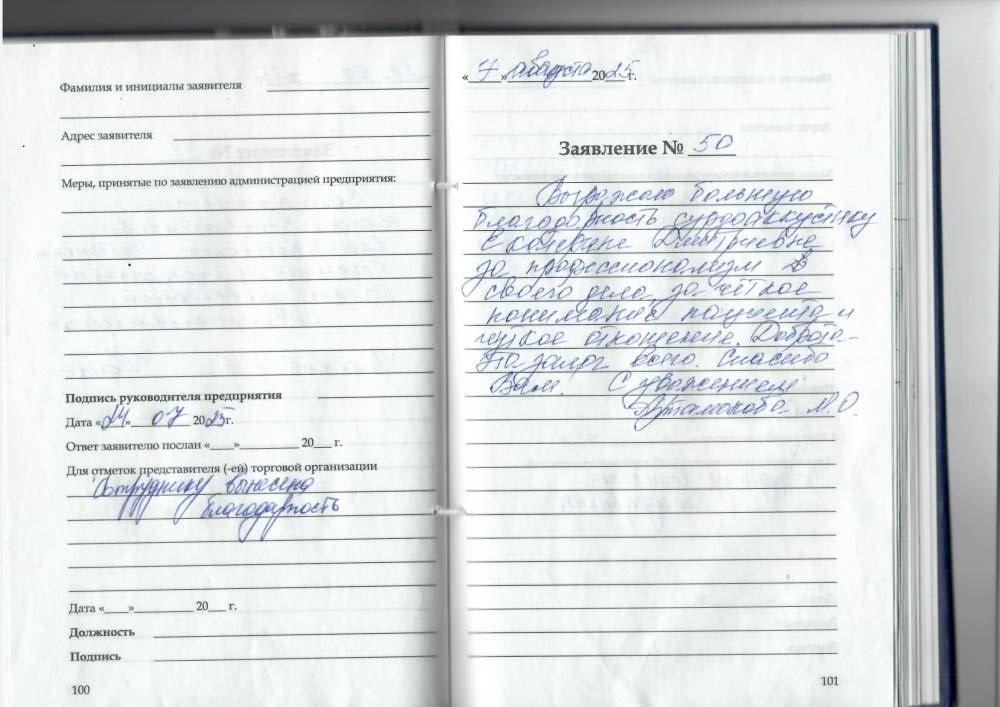 Фамилия и инициалы заявителя
Адрес заявителя
Меры, принятые по заявлению администрацией предприятия:
Подпись руководителя предприятия
Дата «24» 07 2025г.
Ответ заявителю послан «___»__________ 20___ г.
Для отметок представителя (-ей) торговой организации
Сотруднику вынесена
благодарность
Дата «____»__________ 20___ г.
Должность
Подпись
100
«7» августа 2025г.
Заявление № 50
Выражаю большую
благодарность сурдоаккустику
Екатерине Дмитриевне
за профессионализм в
своего дела, за чёткое
понимание пациента и
чуткое отношение. Доброта-
это залог всего. Спасибо
Вам. С уважением
Артамонова М.О.
101